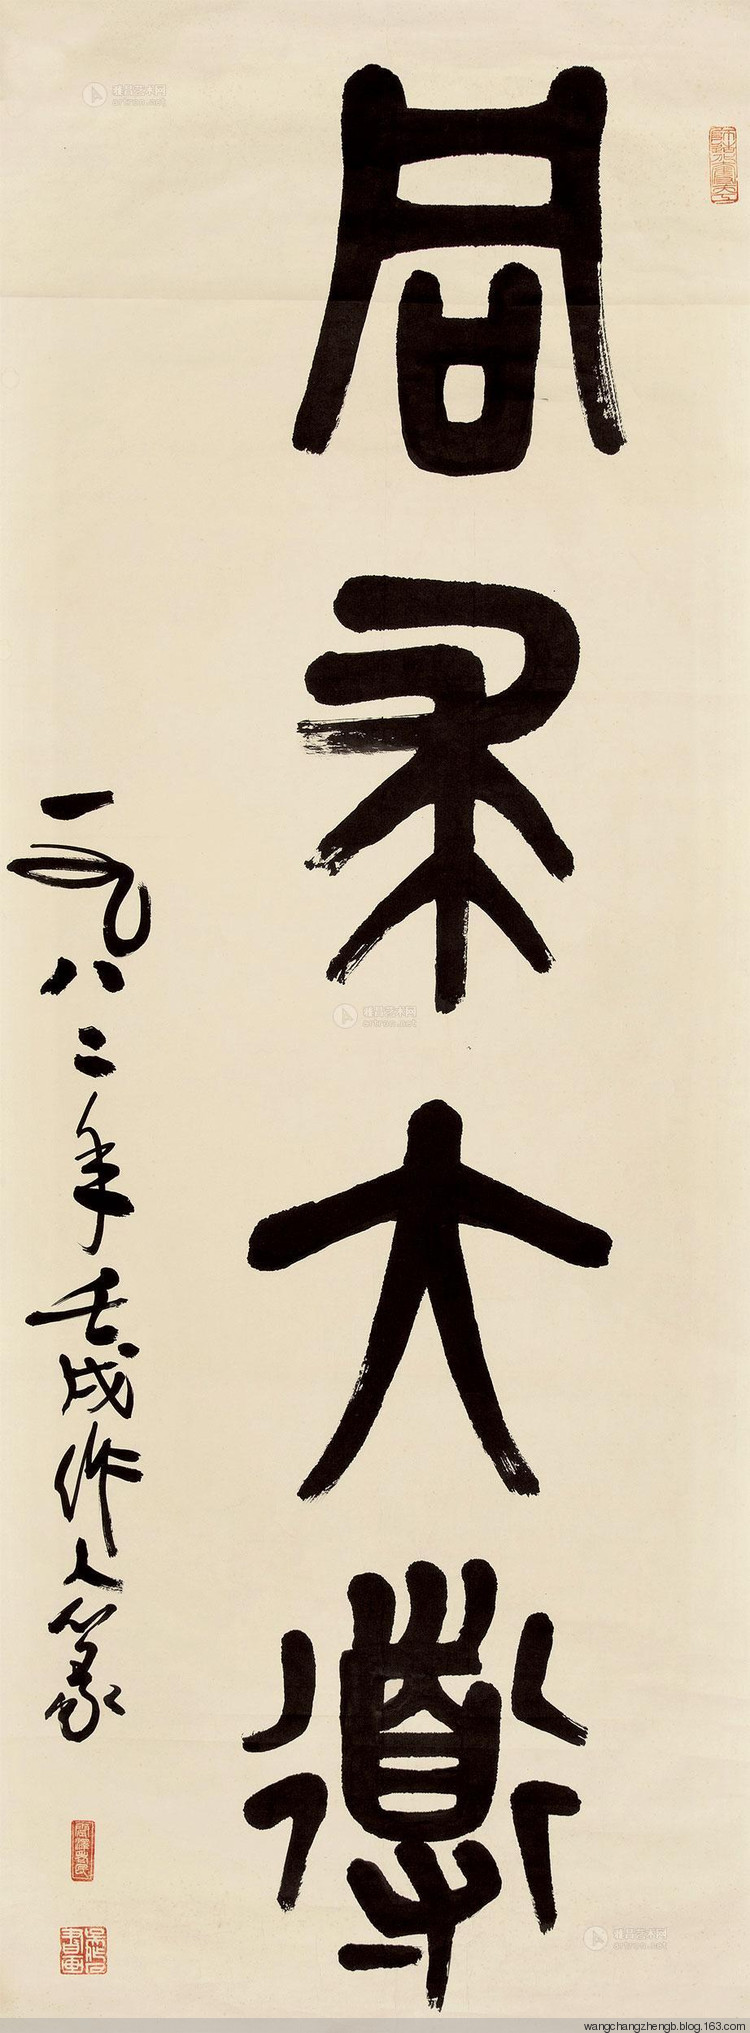 同大道
一九八二年壬戌作人篆
wangchangzhengb.blog.163.com